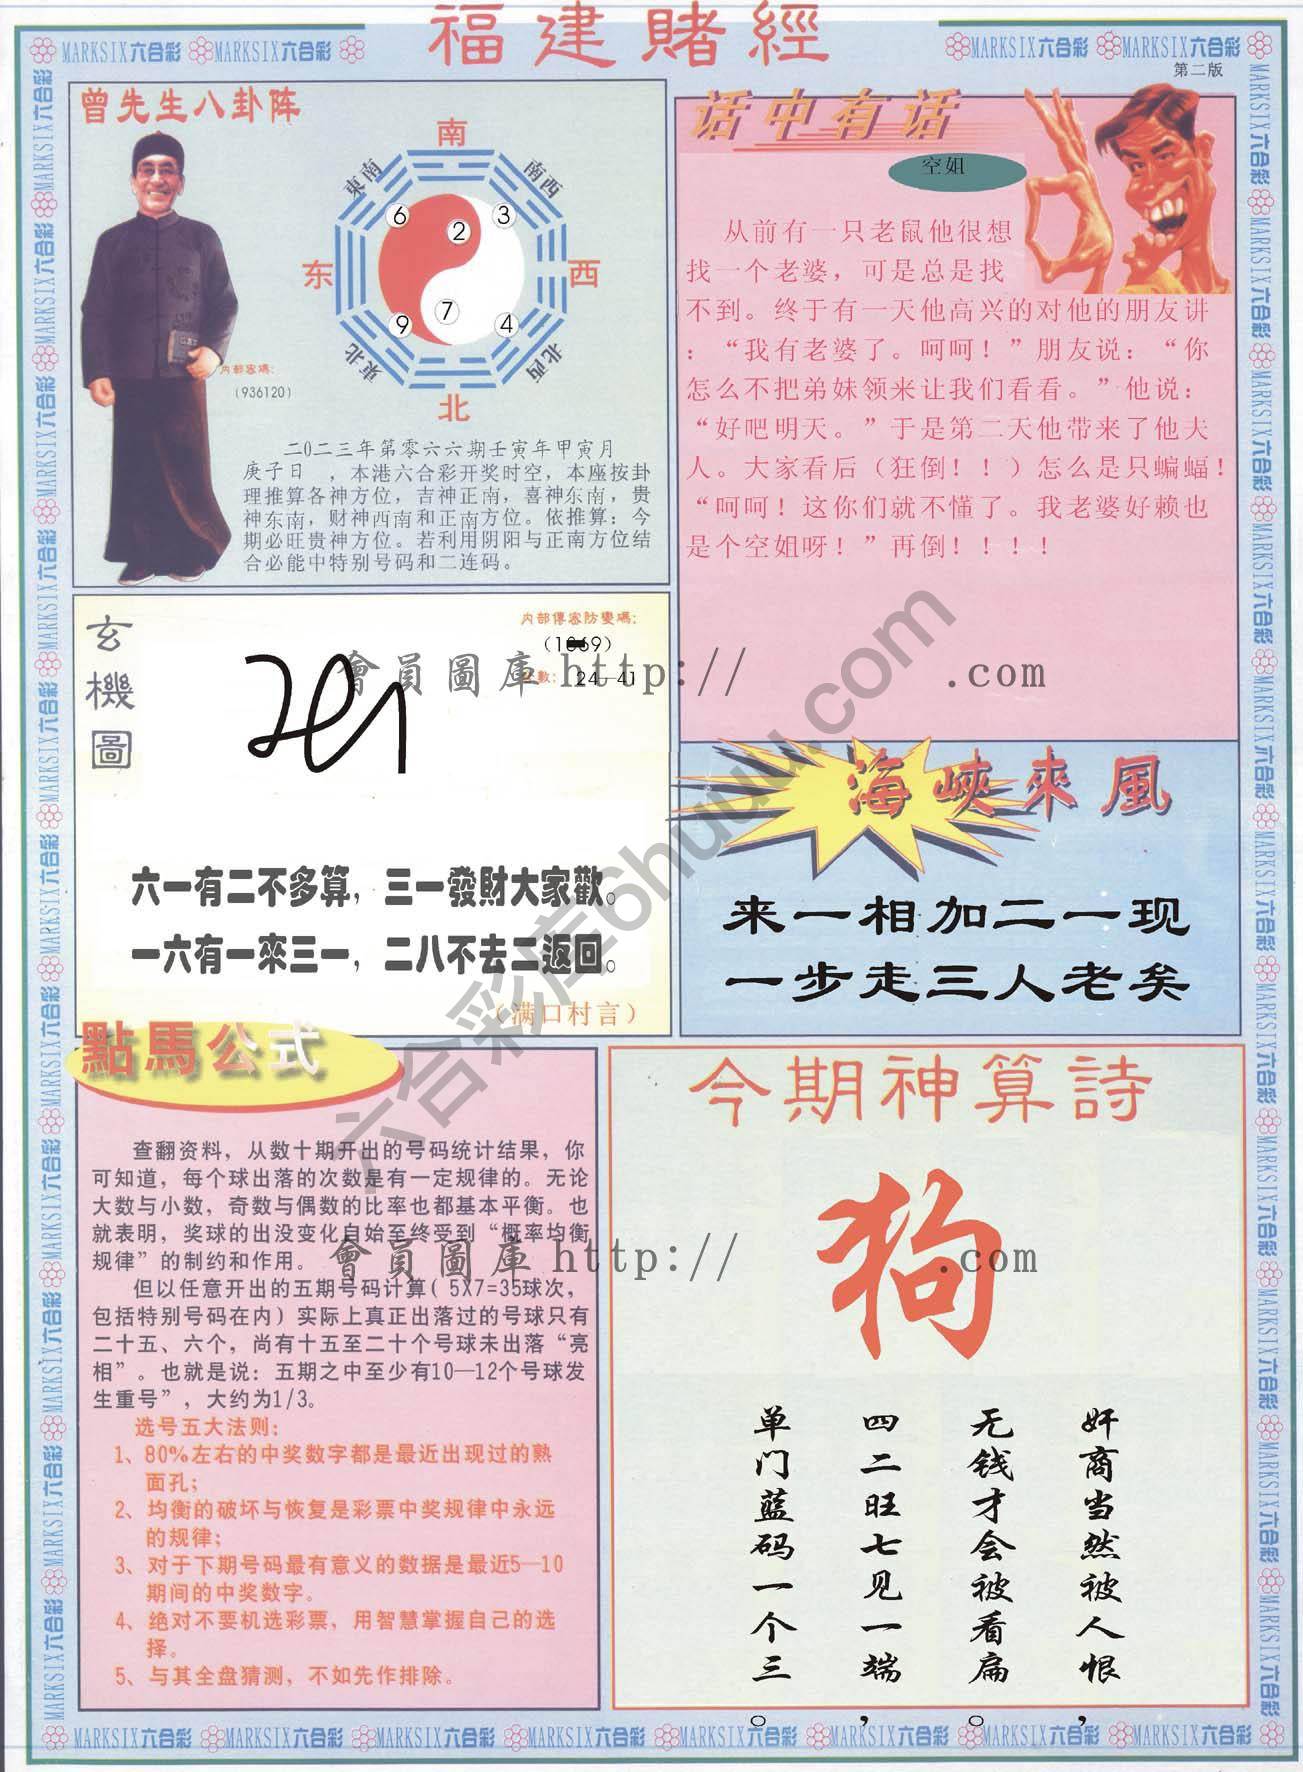 福建賭經
MARKSIX六合彩 MARKSIX六合彩
MARKSIX六合彩 MARKSIX六合彩
第二版
曾先生八卦阵
南
東南
南西
6
2
3
东
西
9
7
4
東北
北西
北
内部密碼:
(936120)
二0二三年第零六六期壬寅年甲寅月
庚子日　，本港六合彩开奖时空，本座按卦
理推算各神方位，吉神正南，喜神东南，贵
神东南，财神西南和正南方位。依推算：今
期必旺贵神方位。若利用阴阳与正南方位结
合必能中特别号码和二连码。
话中有话
空姐
从前有一只老鼠他很想
找一个老婆，可是总是找
不到。终于有一天他高兴的对他的朋友讲
：“我有老婆了。呵呵！”朋友说：“你
怎么不把弟妹领来让我们看看。”他说：
“好吧明天。”于是第二天他带来了他夫
人。大家看后（狂倒！！）怎么是只蝙蝠！
“呵呵！这你们就不懂了。我老婆好赖也
是个空姐呀！”再倒！！！！
玄機圖
内部傳密防變碼:
24—41
會員圖庫 http:// .com
六一有二不多算，三一發財大家歡。
一六有一來三一，二八不去二返回。
（满口村言）
海峽來風
来一相加二一现
一步走三人老矣
點馬公式
查翻资料，从数十期开出的号码统计结果，你
可知道，每个球出落的次数是有一定规律的。无论
大数与小数，奇数与偶数的比率也都基本平衡。也
就表明，奖球的出没变化自始至终受到“概率均衡
规律”的制约和作用。
但以任意开出的五期号码计算( 5X7=35球次，
包括特别号码在内）实际上真正出落过的号球只有
二十五、六个，尚有十五至二十个号球未出落“亮
相”。也就是说：五期之中至少有10—12个号球发
生重号”，大约为1/3。
选号五大法则:
1、80%左右的中奖数字都是最近出现过的熟
面孔;
2、均衡的破坏与恢复是彩票中奖规律中永远
的规律;
3、对于下期号码最有意义的数据是最近5—10
期间的中奖数字。
4、绝对不要机选彩票，用智慧掌握自己的选
择。
5、与其全盘猜测，不如先作排除。
今期神算詩
狗
會員圖庫 http:// .com
奸商当然被人恨，
无钱才会被看扁。
四二旺七见一端，
单门蓝码一个三。
六合彩库6huuu.com
MARKSIX六合彩 MARKSIX六合彩 MARKSIX六合彩 MARKSIX六合彩 MARKSIX六合彩 MARKSIX六合彩 MARKSIX六合彩 MARKSIX六合彩